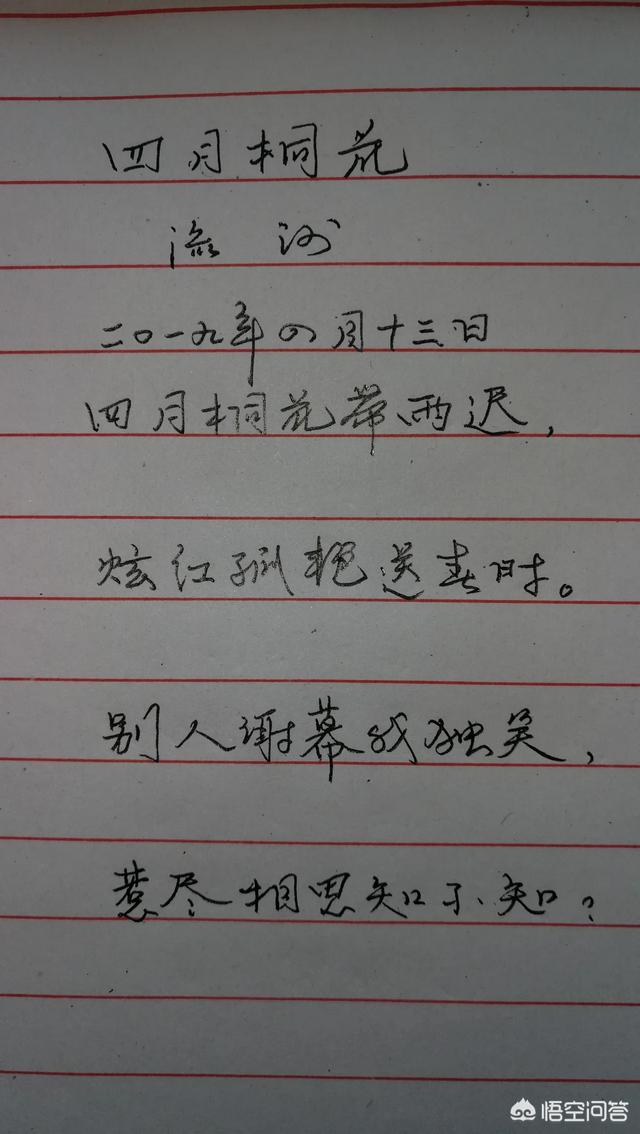 四月桐花
洲
二〇一九年四月十三日
四月桐花带雨迟，
炫红孤艳送春时。
别人谢幕我独笑，
惹尽相思知不知？
悟空问答